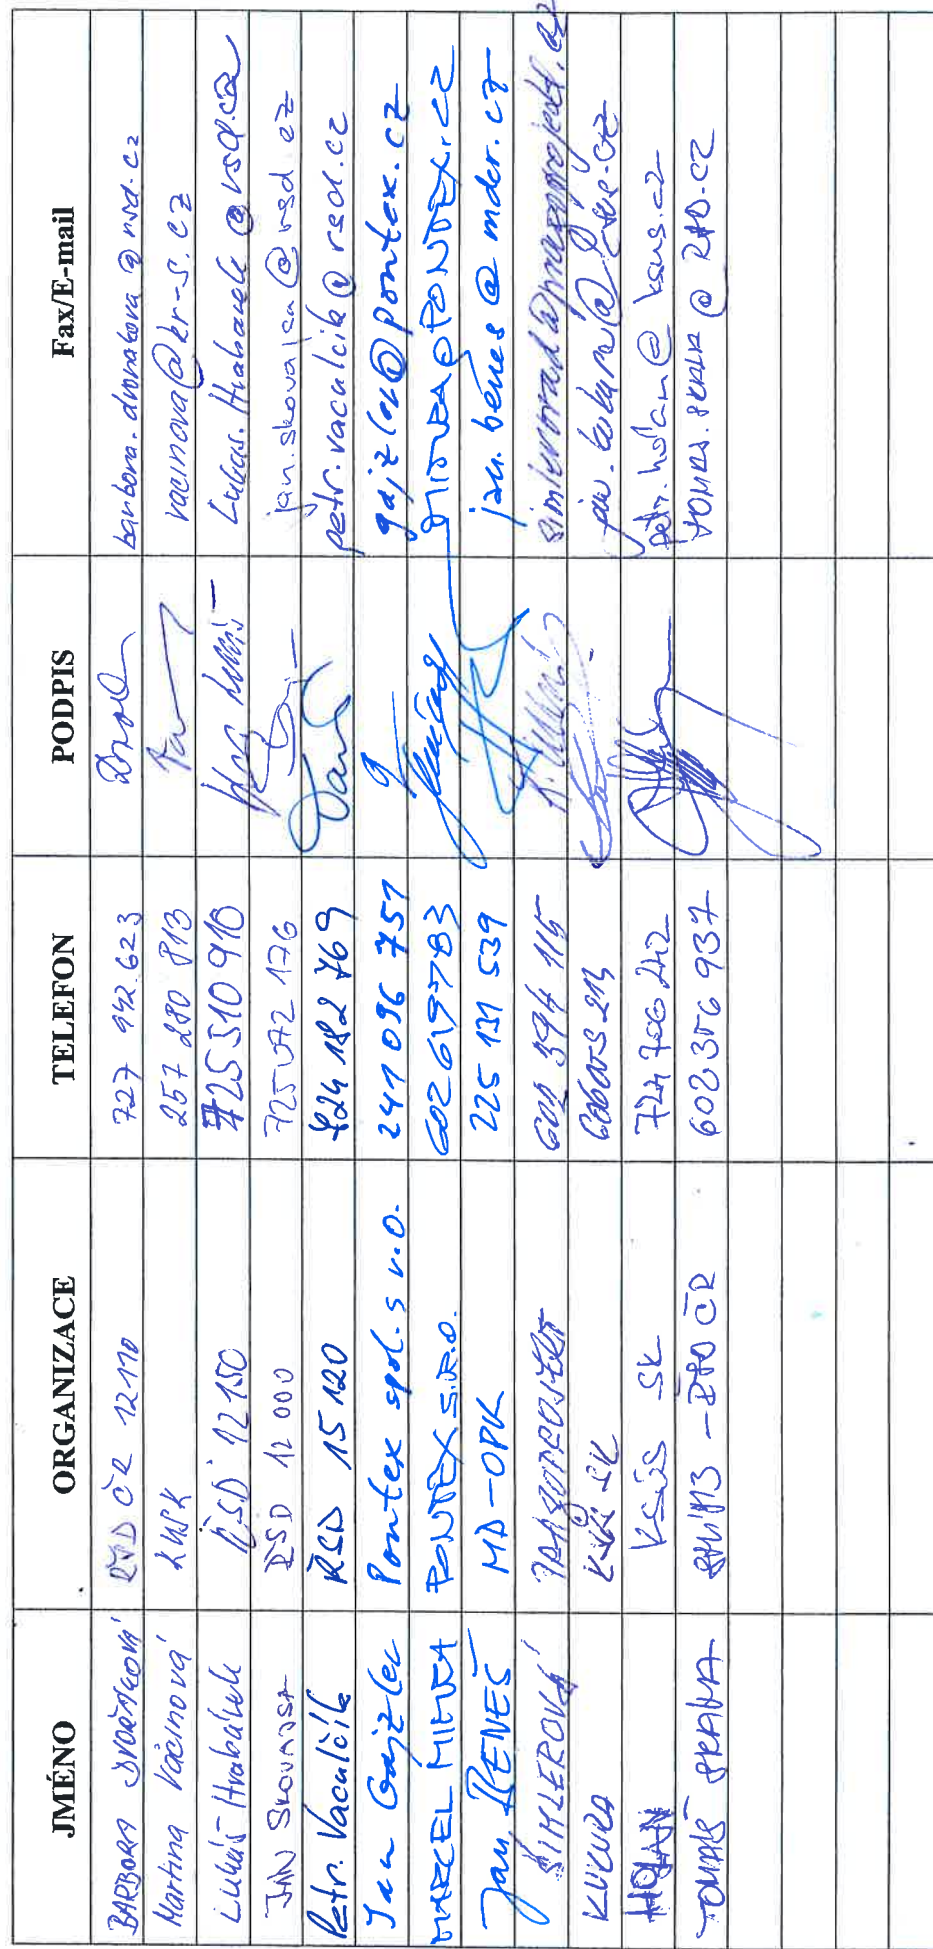 JMÉNO ORGANIZACE TELEFON PODPIS Fax/E-mail
BARBORA DVOŘÁKOVÁ ŘSD ČR 12110 727 942 623 barbora.dvorakova@rsd.cz
Martina Vacinová KÚSK 257 280 813 vacinova@kr-s.cz
Lukáš Hrabánek ŘSD 12150 725510910 Lukas.Hrabanek@rsd.cz
JAN SKOVAJSA ŘSD 12 000 725 072 176 jan.skovajsa@rsd.cz
Petr Vaculčík ŘSD 15 120 724 182 769 petr.vaculcik@rsd.cz
Jan Gajzler Pontex spol. s r.o. 241 096 751 gajzler@pontex.cz
MARCEL MIMRA PONTEX s.r.o. 602619783 MIMRA@PONTEX.CZ
Jan BENEŠ MD-OPK 225 131 539 jan.benes@mdcr.cz
ŠIMLEROVÁ PRAGOPROJEKT 394 115
KUČERA KSÚS SK
HOLAN KSÚS SK 724 706 242 petr.holan@ksus.cz
TOMÁŠ - ŘSD ČR 602356 937 @RSD.CZ